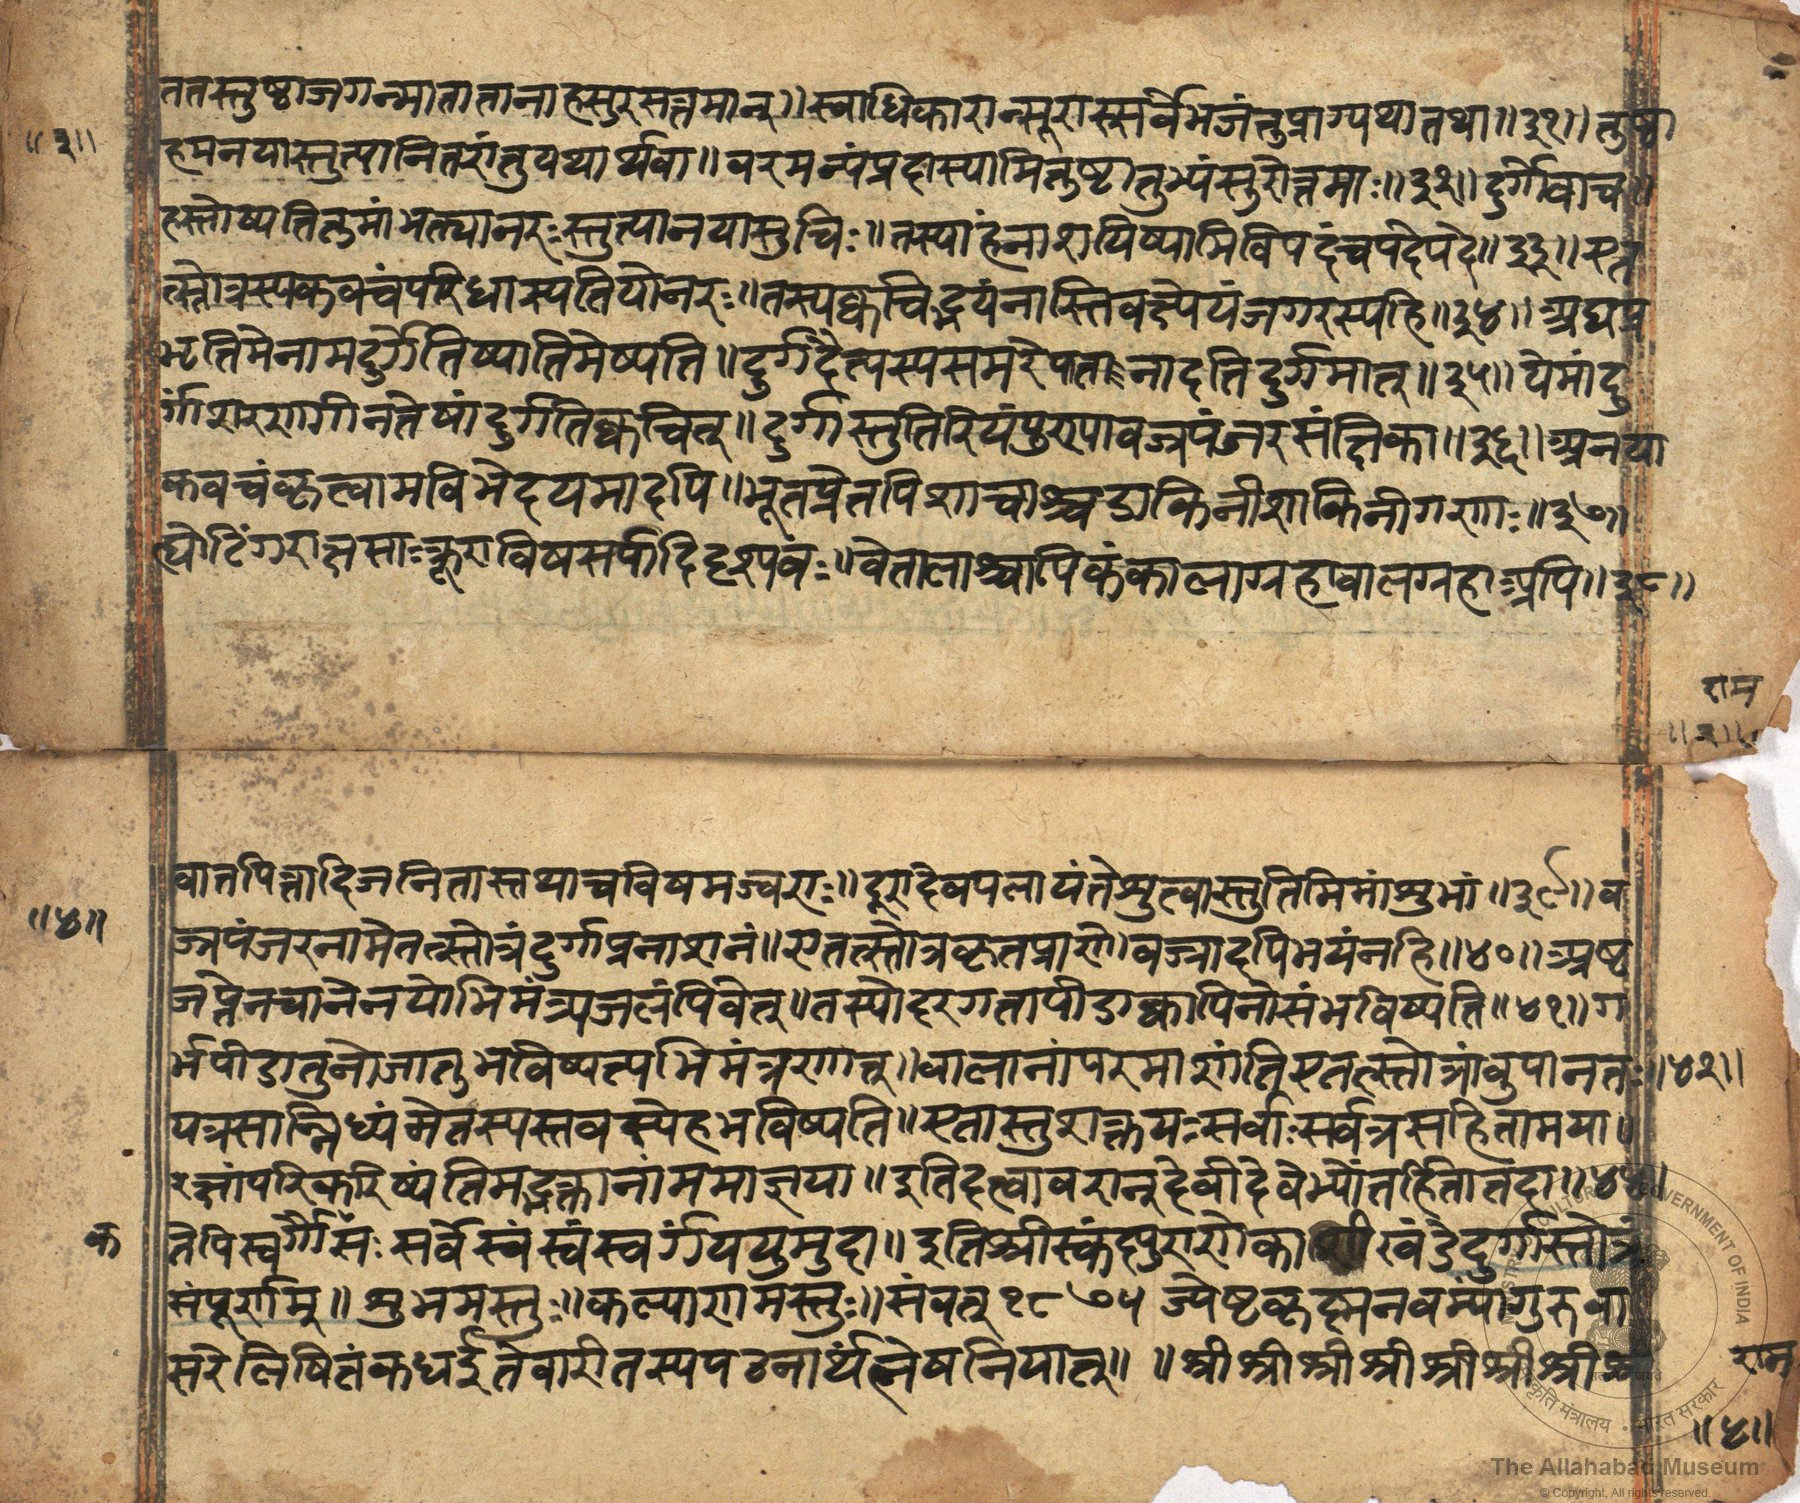 ततस्तुष्टाजगन्मातातानाहसुरसत्तमान्॥स्वाधिकारान्सूरास्सर्वेभजंतुप्राग्यथातथा॥३१॥तुष्टा
॥३॥
हमनयास्तुत्यानितरांतुयथार्थवा॥वरमन्यंप्रहास्यामितुष्टातुभ्यंसुरोत्तमाः॥३२॥दुर्गोवाच॥
हस्तोष्यतितुमांभक्त्यानरःस्तुत्यानयासुचिः॥तस्याहंनाशयिष्यामिविपदंचपदेपदे॥३३॥एत
त्स्तोत्रस्यकवचंपरिधास्यतियोनरः॥तस्यक्वचिद्भयंनास्तिवज्रपंजगरस्यहि॥३४॥अद्यप्र
भृतिमेनामदुर्गेतिष्यातिमेष्यति॥दुर्गदैत्यस्यसमरेपातनादतिदुर्गमात्॥३५॥येमांदु
र्गांशरणगीनतेषांदुर्गतिक्वचित्॥दुर्गास्तुतिरियंपुण्यावज्रपंजरसंज्ञिका॥३६॥अनया
कवचंकृत्वामविभेदयमादपि॥भूतप्रेतपिशाचाश्चडाकिनीशाकिनीगणाः॥३७॥
त्योटिंगराक्षसाःक्रूराविषसर्पादिदृश्यवः॥वेतालाश्चापिकंकालाग्रहाबालग्रहाअपि॥३८॥
राम
॥३॥
वातपित्तादिजनितास्तथाचविषमज्वराः॥दूरादेवपलायंतेश्रुत्वास्तुतिमिमांशुभां॥३९॥व
॥४॥
ज्रपंजरनामैतत्स्तोत्रंदुर्गाप्रनाशनं॥एतत्स्तोत्रकृतत्राणेवज्रादपिभयंनहि॥४०॥अष्ट
जप्तेनचानेनयोभिमंत्र्यजलंपिवेत्॥तस्योदरगतापीडाक्वापिनोसंभविष्यति॥४१॥ग
र्भपीडातुनोजातुभविष्यत्यभिमंत्रणात्॥बालानांपरमाशांतिएतत्स्तोत्रांवुपानतः॥४२॥
यत्रसान्निध्यंमेतस्यस्तवस्येहभविष्यति॥एतास्तुशक्तयःसर्वाःसर्वत्रसहितामया॥
रक्षांपरिकरिष्यंतिमद्भक्तानांममाज्ञया॥इतिदत्वावरान्देवीदेवेभ्योंतर्हितातदा॥४४॥
क
तेपिस्वर्गौसः सर्वेस्वंस्वंस्वर्गंययुमुदा॥इतिश्रीस्कंदपुराणेकाशीखंडेदुर्गास्तोत्रं
संपूर्णम्॥शुभमस्तुः॥कल्याणमस्तुः॥संवत् १८७५ ज्येष्ठकृह्मनवम्यांगुरुवा
सरेलिषितंकधईतेवारीतस्यपठनार्थंलेषनियात्॥ ॥श्रीश्रीश्रीश्रीश्रीश्रीश्रीश्री
राम
॥४॥
The Allahabad Museum
© Copyright, All rights reserved.